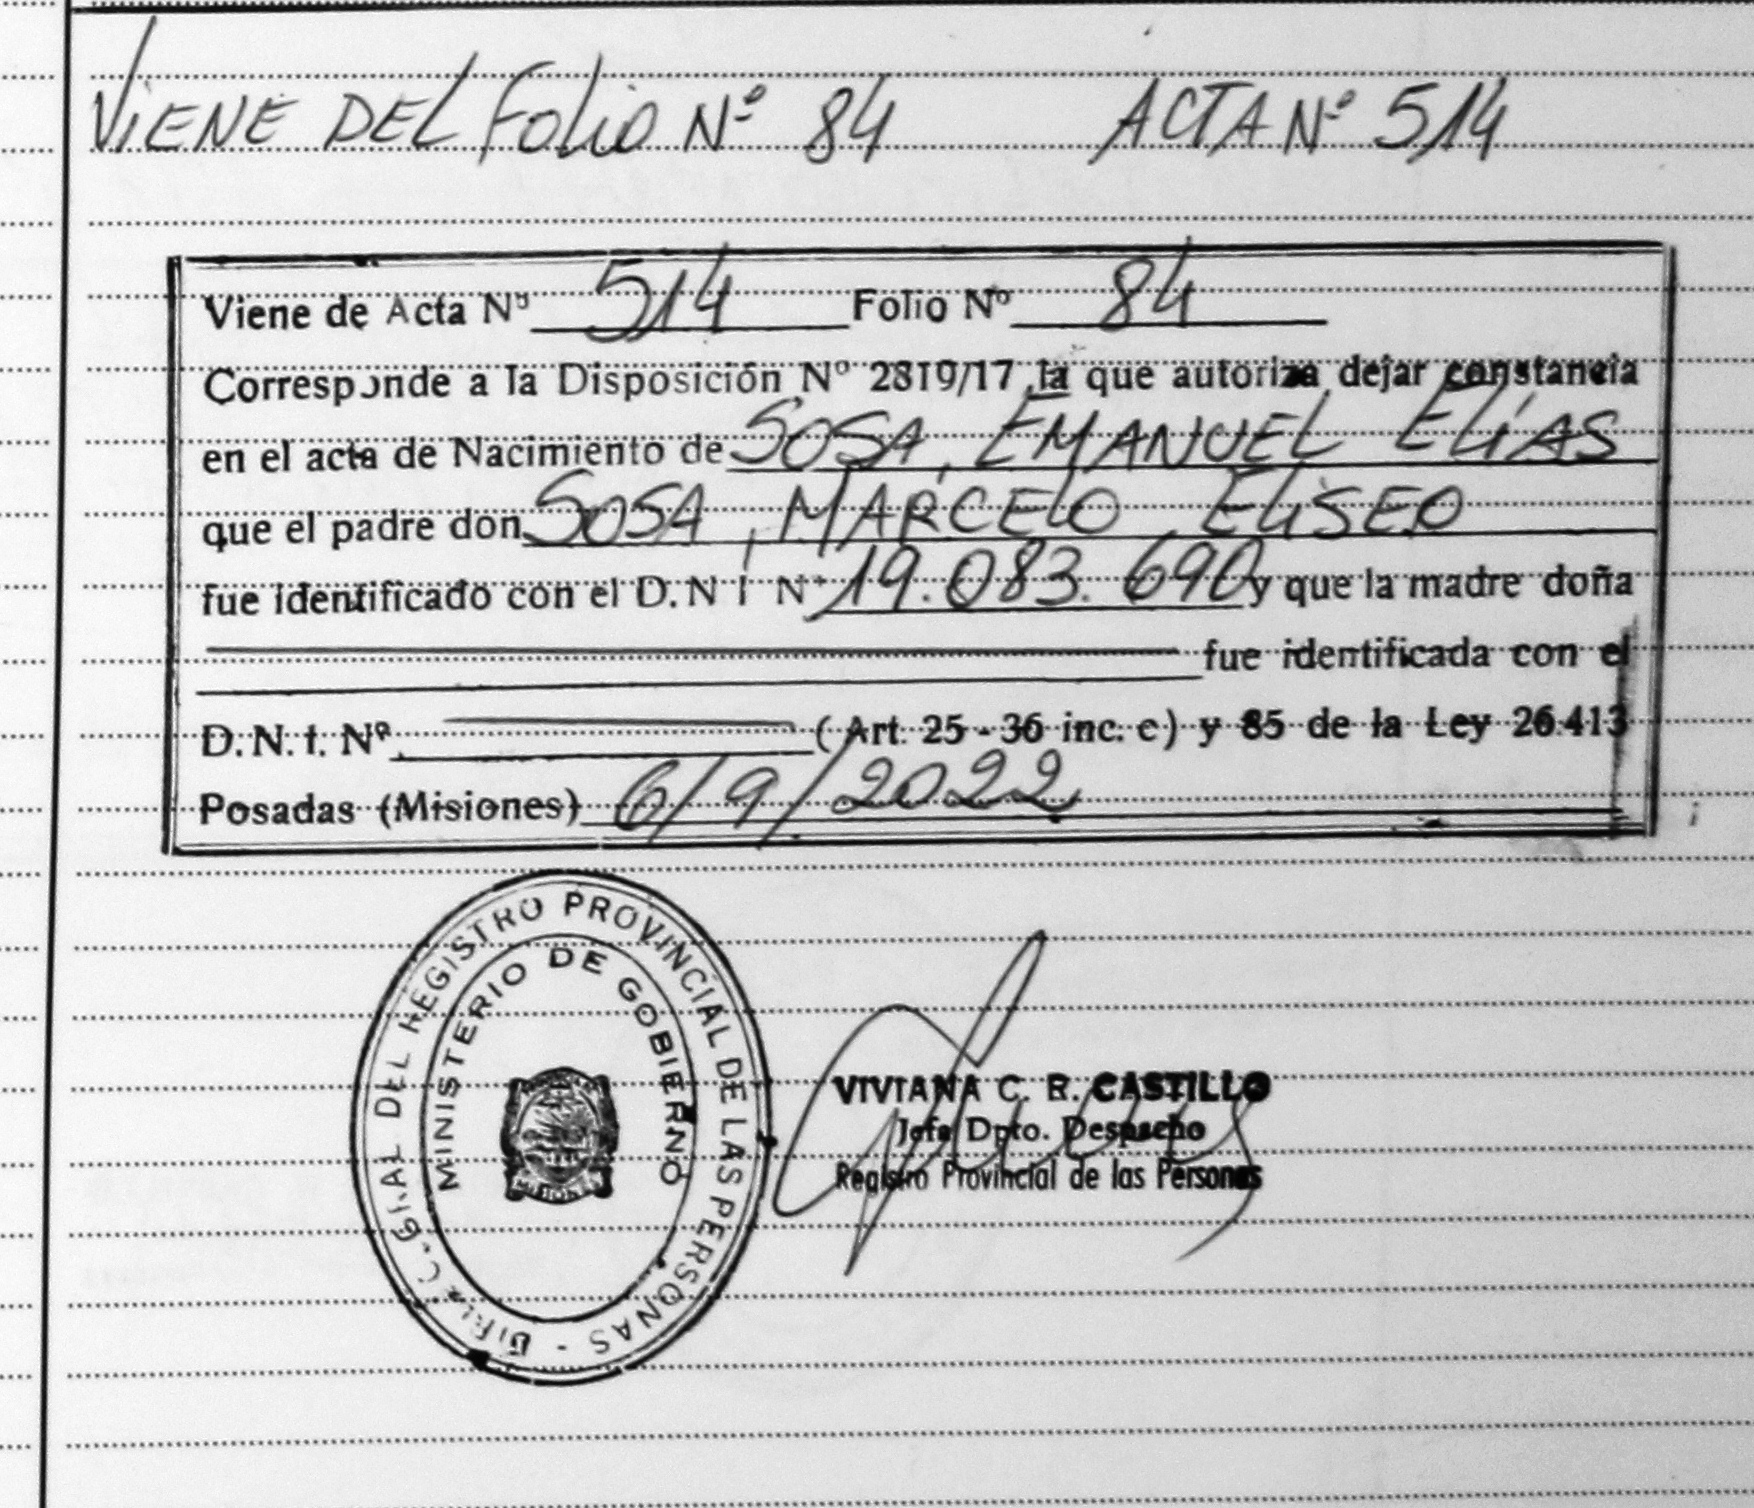 VIENE DEL FOLIO Nº 84 ACTA Nº 514
Viene de Acta Nº 514 Folio Nº 84
Corresponde a la Disposición Nº 2819/17 la que autoriza dejar constancia
en el acta de Nacimiento de SOSA, EMANUEL ELÍAS
que el padre don SOSA, MARCELO ELISEO
fue identificado con el D.N I Nº 19.083.690 y que la madre doña
fue identificada con el
D.N.I. Nº (Art. 25 - 36 inc. c) y 85 de la Ley 26.413
Posadas (Misiones) 6/9/2022
DEL REGISTRO PROVINCIAL DE LAS PERSONAS -
MINISTERIO DE GOBIERNO
VIVIANA C. R. CASTILLO
Jefa Dpto. Despacho
Registro Provincial de las Personas